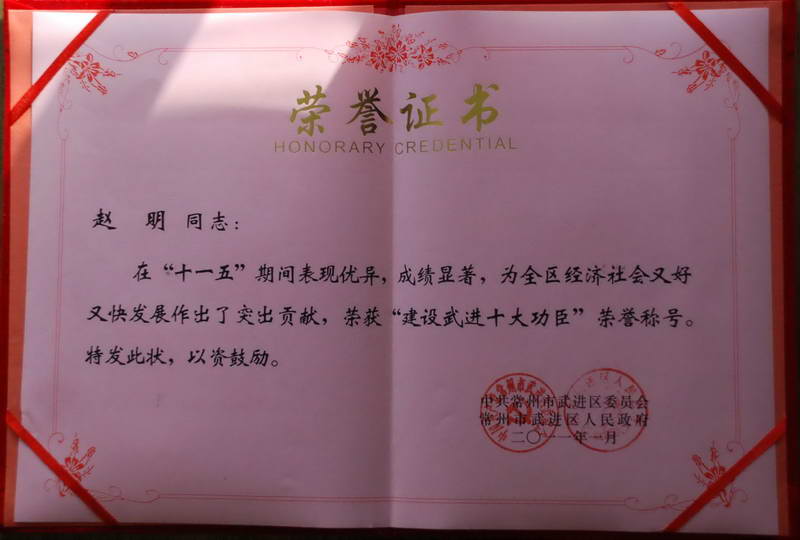 荣誉证书
HONORARY CREDENTIAL
赵 明 同志：
在“十一五”期间表现优异，成绩显著，为全区经济社会又好
又快发展作出了突出贡献，荣获“建设武进十大功臣”荣誉称号。
特发此状，以资鼓励。
中共常州市武进区委员会
常州市武进区人民政府
二〇一一年一月